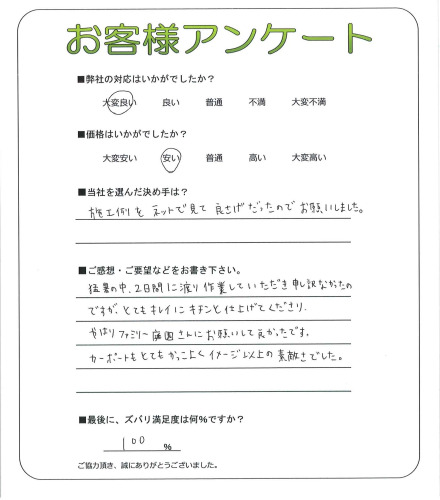 お客様アンケート
■弊社の対応はいかがでしたか？
大変良い　良い　普通　不満　大変不満
■価格はいかがでしたか？
大変安い　安い　普通　高い　大変高い
■当社を選んだ決め手は？
施工例を ネットで見て 良さげだったので お願いしました。
■ご感想・ご要望などをお書き下さい。
猛暑の中、2日間に渡り作業していただき 申し訳なかったの
ですが、とてもキレイに キチンと仕上げてくださり、
やはり ファミリー庭園さんにお願いして良かったです。
カーポートもとてもかっこよくイメージ以上の素敵さでした。
■最後に、ズバリ満足度は何％ですか？
100 ％
ご協力頂き、誠にありがとうございました。